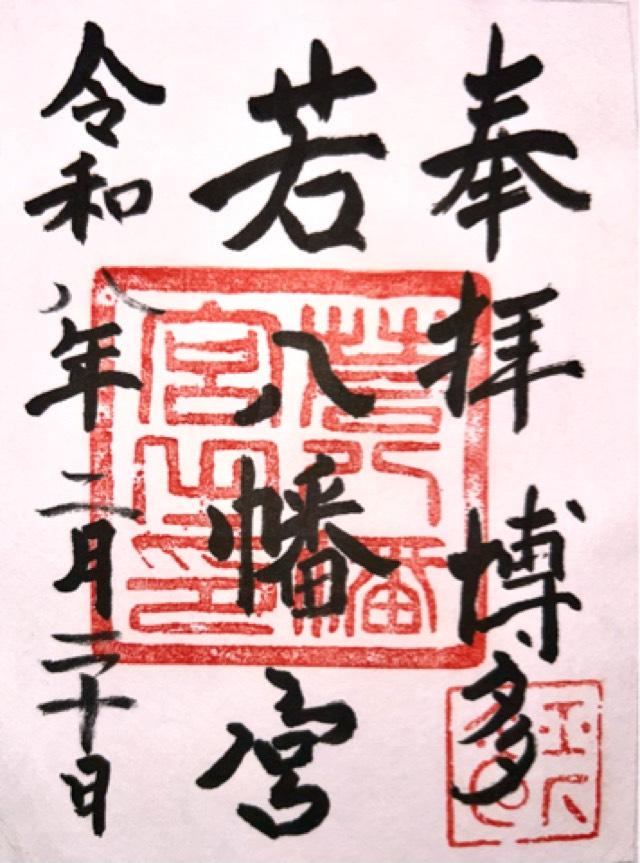 奉拝 博多
若八幡宮
令和八年二月二十日
若八幡宮之印